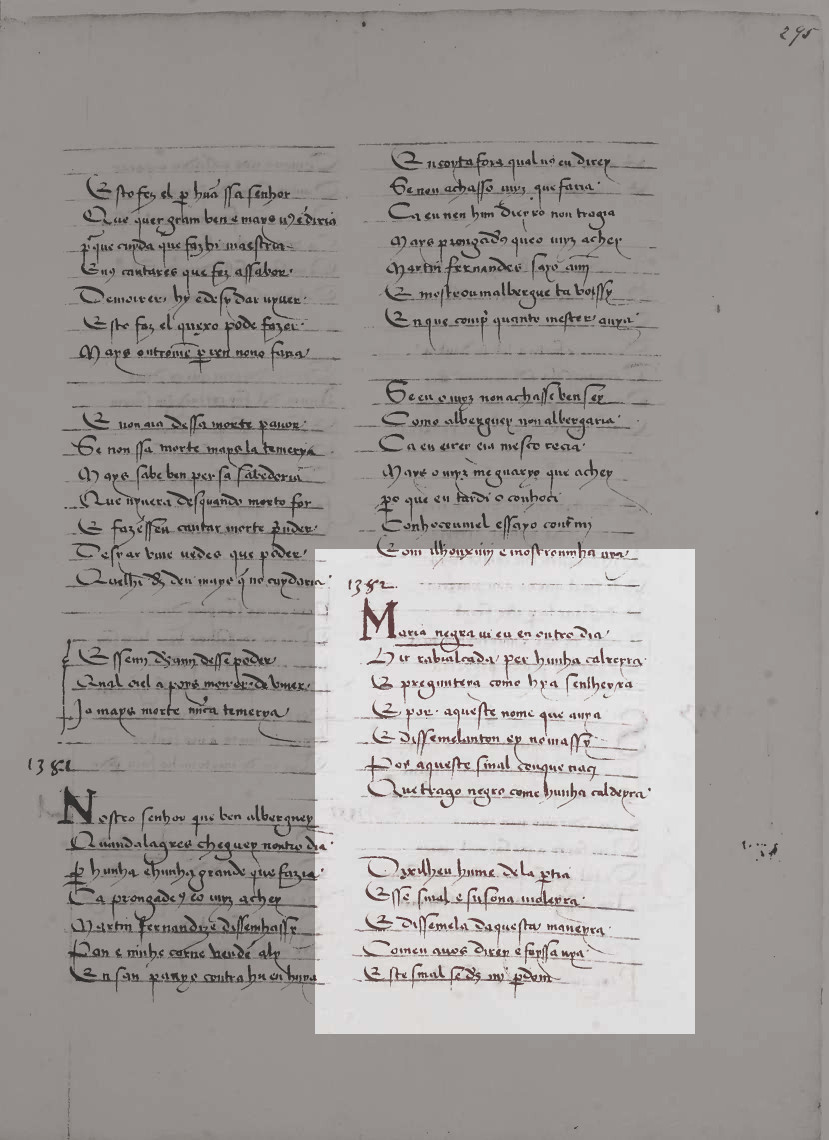 295
Esto fez el p hua ssa senhor
Que quer gram ben e mays
q cuyda que faz hi maestria
Enos cantares que fez assabor
De moirer hy e desy dar vyuer
Esto faz el queo pode fazer
Mays outrome p ren nono faria
E non aia dessa morte pauor
Se non ssa morte mays la temerya
Mays sabe ben per sa sabedoria
Que uyuera des quando morto for
E faz essen cantar morte prender
Desy ar uiue uedes que poder
Quelhi de ds mays q no cuydaria
E sse mi ds ami desse poder
Qual oiel a poys morrer de uiuer
Ja mays morte nuca temerya
1381
Nostro senhor que ben alberguey
Quand a lagres cheguey noutro dia
p hunha chunha grande que fazia
Ca prougad eo uyz achey
Martin Fernandiz e dissemhassy
Pan e uinh e carne uendé aly
En san payo contra hu en hunya
En coyta fora qual uos eu direy
Se non achasso uyz que faria
Ca eu nen hun dieyro non tragia
Mays prougad queo uyz achey
Martin fernandes
E mostroum albergue
En que comp quanto mester auya
Se eu o uyz non achasse ben sey
Como alberguey non albergaria
Ca eu
Mays o uyz me guaryo que achey
po que eu tardi o conhoci
Conhoceumel e ssayo contrmi
e mostroumha uya
1382
Maria negra ui eu en outro dia
Hir rabialçada per hunha carreyra
E pregunteya como hya senlheyra
E por aqueste nome que auya
E dissemelanton ey nomassy
Por aqueste sinal conque naci
Que trago negro come hunha caldeyra
Dixilheu hume dela ptia
Esse sinal e su sona moleyra
E dissemela daquesta maneyra
Comeu auos direy e foyssa uya
Este sinal se ds mi pdom